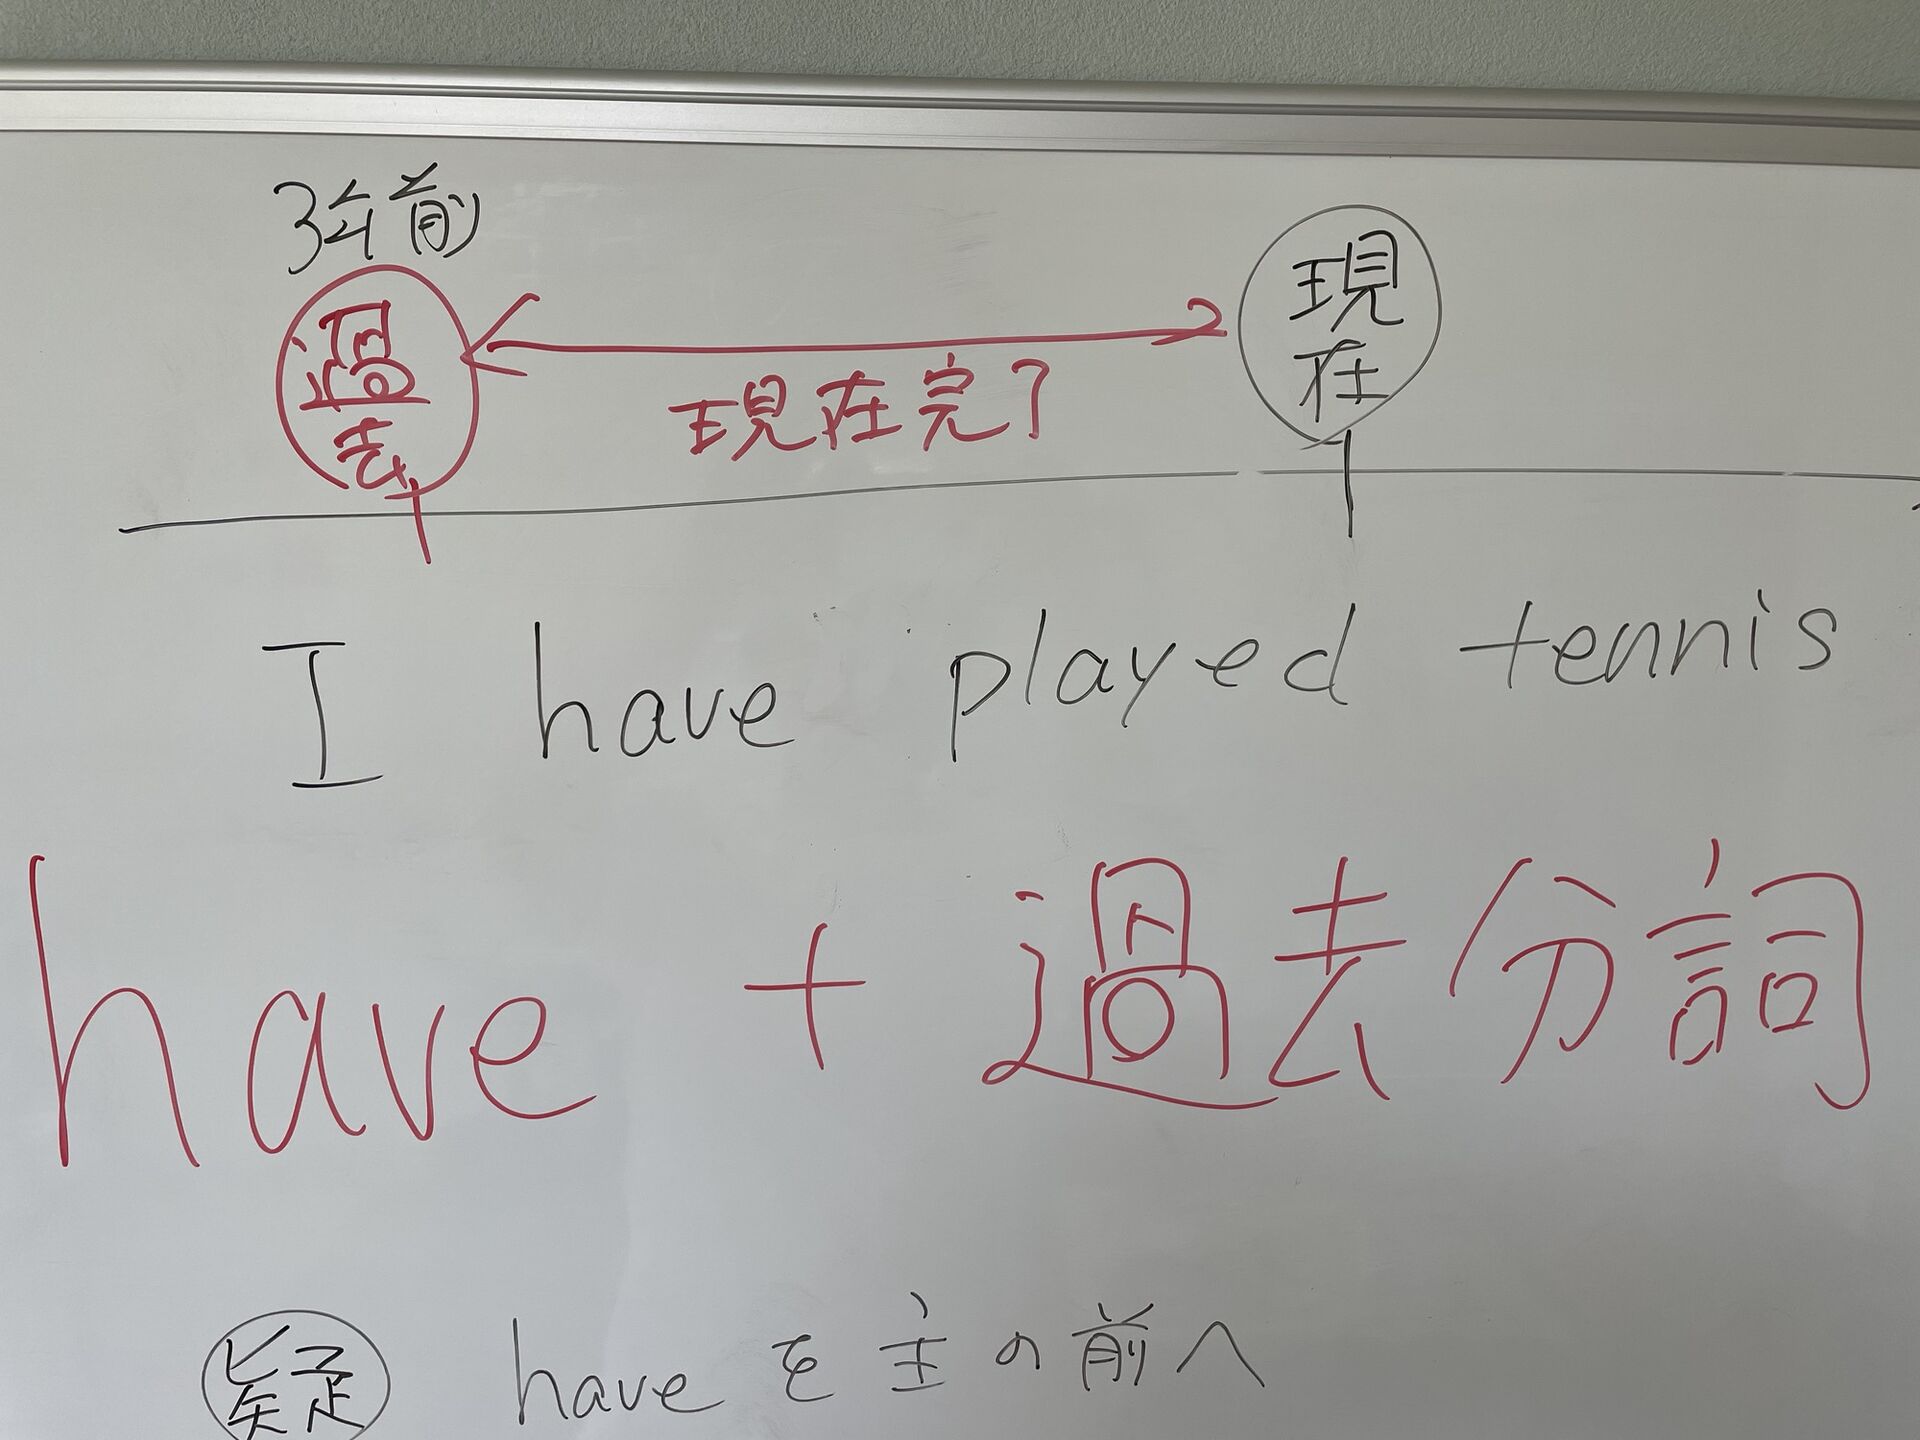 3年前
過去
現在
現在完了
I have played tennis
have + 過去分詞
疑 have を 主 の 前 へ